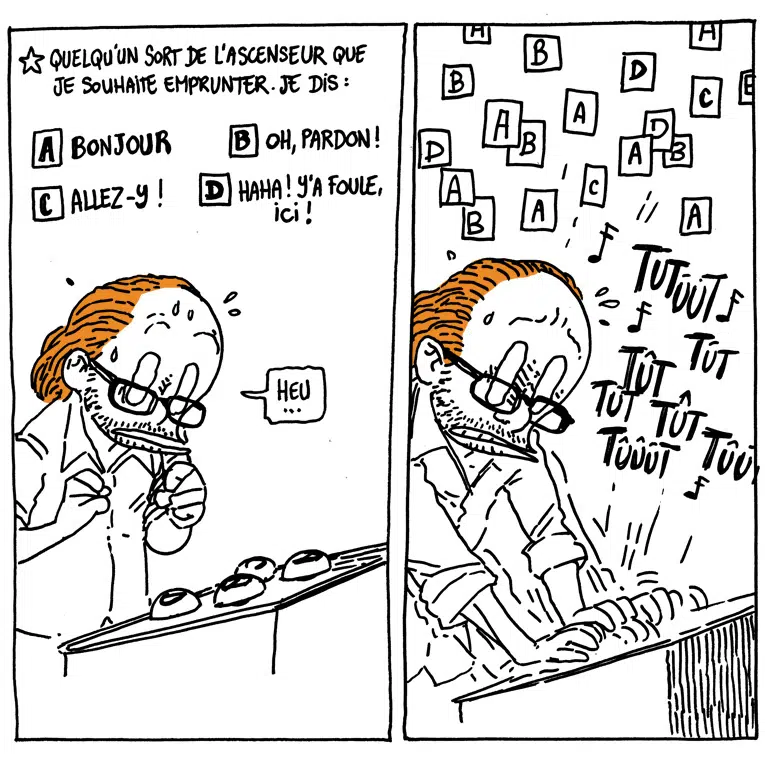 ☆ QUELQU'UN SORT DE L'ASCENSEUR QUE
JE SOUHAITE EMPRUNTER. JE DIS :
A BONJOUR
B OH, PARDON !
C ALLEZ-Y !
D HAHA ! Y'A FOULE,
ici !
HEU
...
A
B
A
B
D
C
E
A
A
B
D
D
A
B
A
C
B
A
A
TUTÛÛT
TÛT
TÛT
TUT
TÛT
TÛÛÛT
TÛÛ